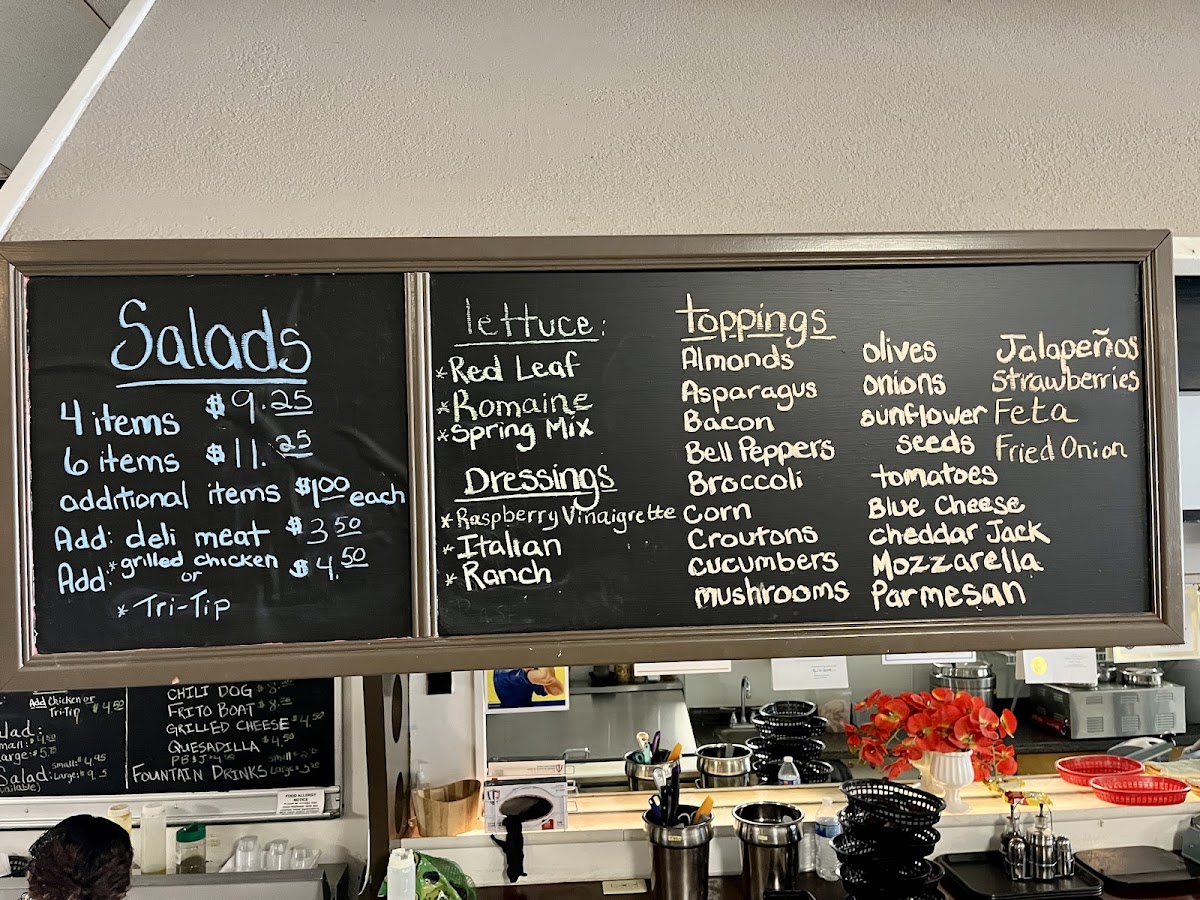 Salads
4 items $9.25
6 items $11.25
additional items $1.00 each
Add: deli meat $3.50
Add: *grilled chicken $4.50
or
*Tri-Tip
lettuce:
*Red Leaf
*Romaine
*Spring Mix
Dressings
*Raspberry Vinaigrette
*Italian
*Ranch
toppings
Almonds
Asparagus
Bacon
Bell Peppers
Broccoli
Corn
Croutons
cucumbers
mushrooms
olives
onions
sunflower
seeds
tomatoes
Blue Cheese
cheddar Jack
Mozzarella
Parmesan
Jalapeños
strawberries
Feta
Fried Onion
Add Chicken or
Tri-Tip $4.50
Small: $4.95
CHILI DOG
FRITO BOAT
GRILLED CHEESE $4.50
QUESADILLA $4.50
PB&J
FOUNTAIN DRINKS
FOOD ALLERGY
NOTICE